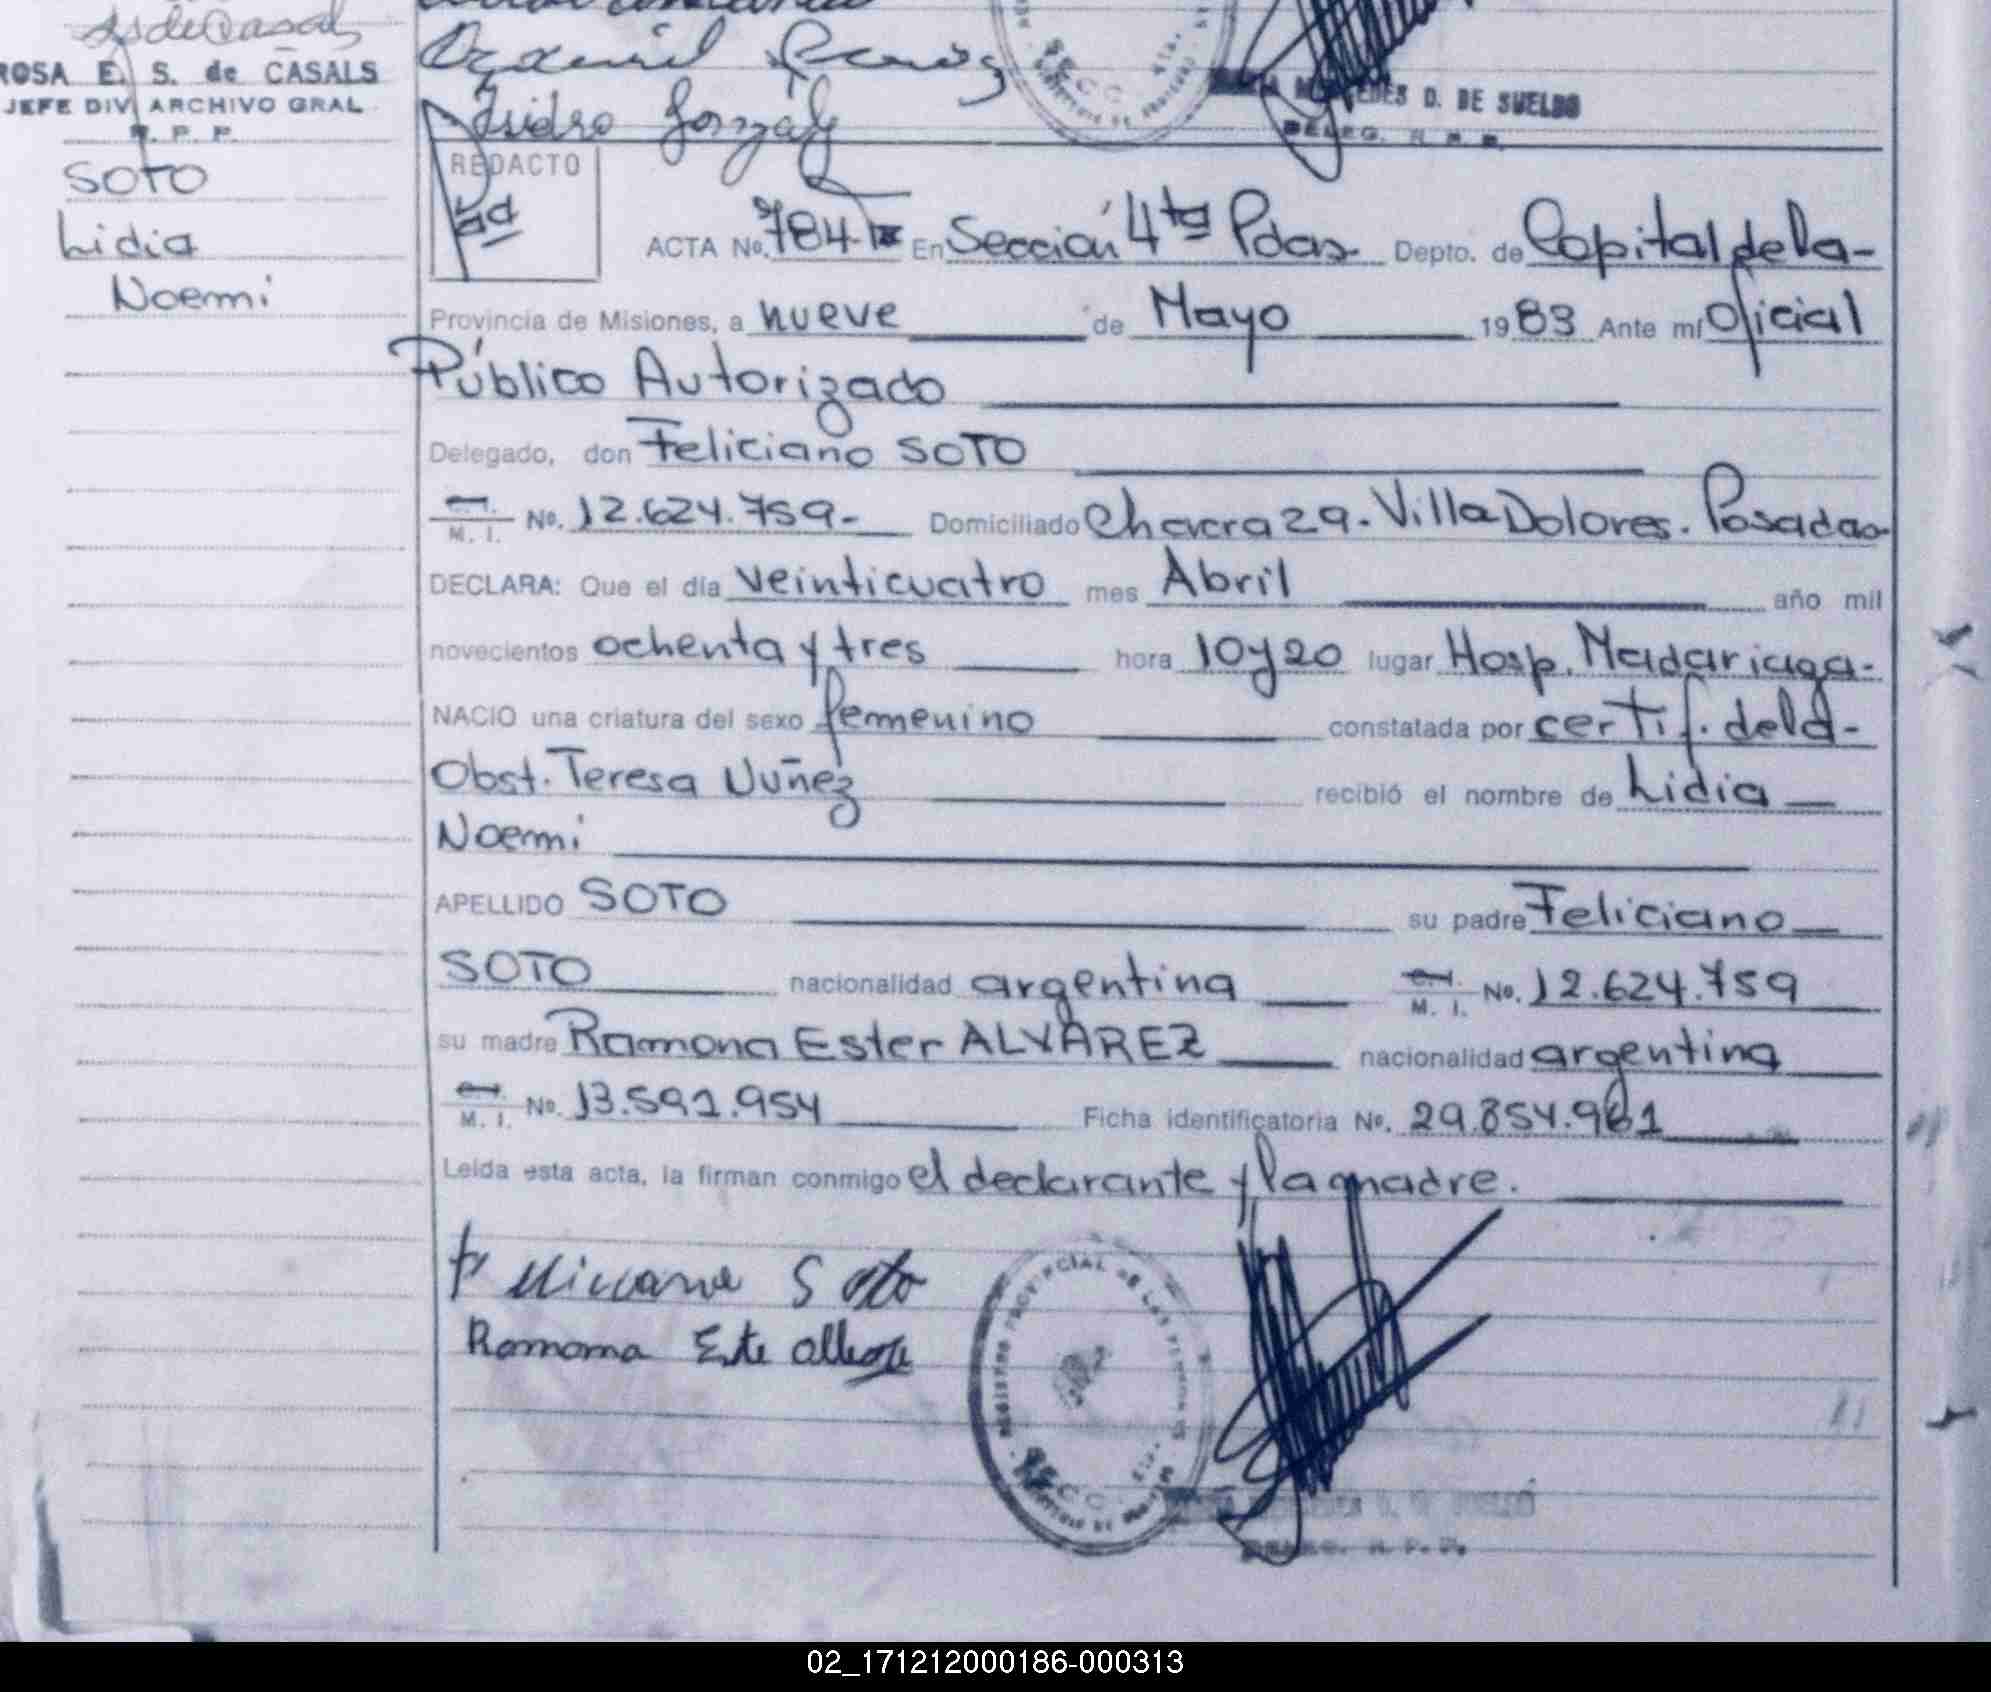 ROSA E. S. de CASALS
JEFE DIV. ARCHIVO GRAL.
R. P. P.
Isidro
DE SUELDO
DELEG. R. P. P.
SOTO
Lidia
Noemi
REDACTO
ACTA No. 784 En Sección 4ta Pdas. Depto. de Capital de la-
Provincia de Misiones, a nueve de Mayo 1983 Ante mí Oficial
Público Autorizado
Delegado, don Feliciano SOTO
C.I. M. I. No. 12.624.759- Domiciliado Chacra 29. Villa Dolores. Posadas
DECLARA: Que el día veinticuatro mes Abril año mil
novecientos ochenta y tres hora 10y20 lugar Hosp. Madariaga-
NACIO una criatura del sexo femenino constatada por certif. de la-
Obst. Teresa Nuñez recibió el nombre de Lidia
Noemi
APELLIDO SOTO su padre Feliciano
SOTO nacionalidad argentina C.I. M. I. No. 12.624.759
su madre Ramona Ester ALVAREZ nacionalidad argentina
C.I. M. I. No. 13.591.954 Ficha identificatoria No. 29.854.961
Leída esta acta, la firman conmigo el declarante y la madre.
Soto
Ramona Este
REGISTRO PROVINCIAL DE LAS PERSONAS
DELEG. R. P. P.
02_171212000186-000313